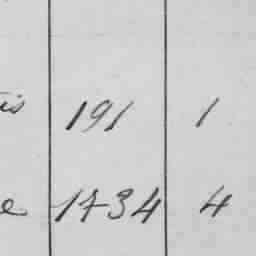 is 191 1
e 1734 4